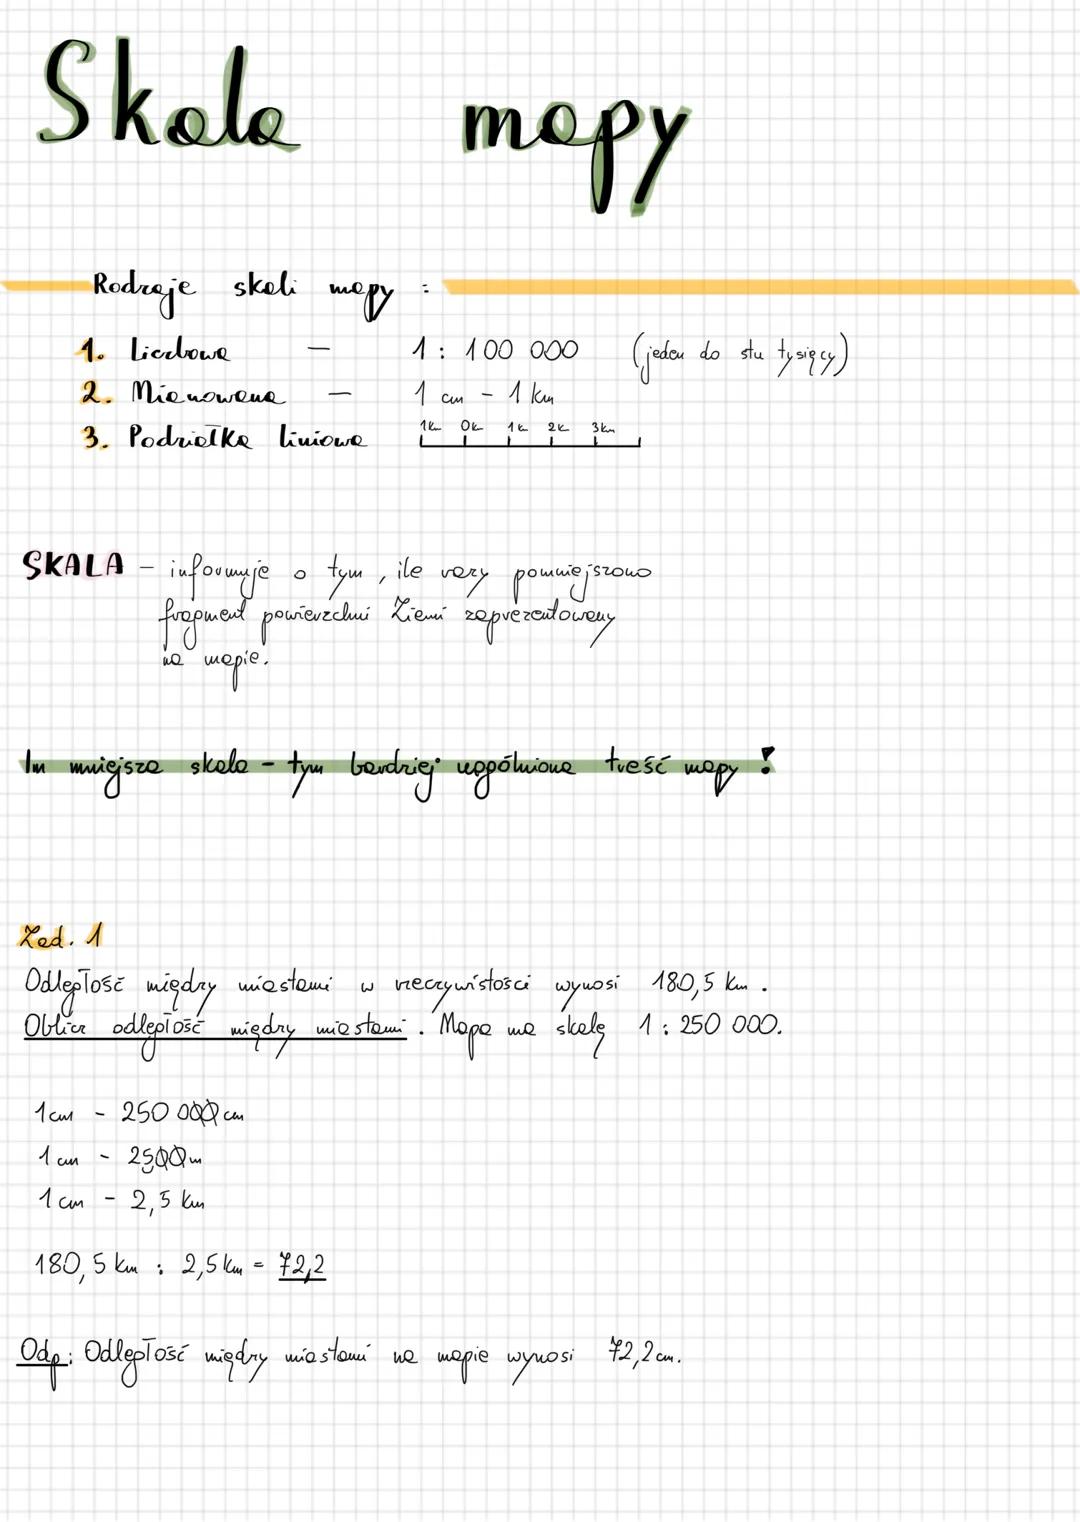 Skala mapy
Rodzaje skali mapy :
1. Liczbowa — 1 : 100 000 (jeden do stu tysięcy)
2. Mianowana — 1 cm - 1 km
3. Podziałka liniowa
1km 0k 1k 2k 3km
SKALA - informuje o tym, ile razy pomniejszono
fragment powierzchni Ziemi zaprezentowany
na mapie.
Im mniejsza skala - tym bardziej uogólniona treść mapy !
Zad. 1
Odległość między miastami w rzeczywistości wynosi 180,5 km .
Oblicz odległość między miastami . Mapa ma skalę 1 : 250 000.
1cm - 250 000 cm
1 cm - 2500 m
1 cm - 2,5 km
180,5 km : 2,5 km = 72,2
Odp: Odległość między miastami na mapie wynosi 72,2 cm.